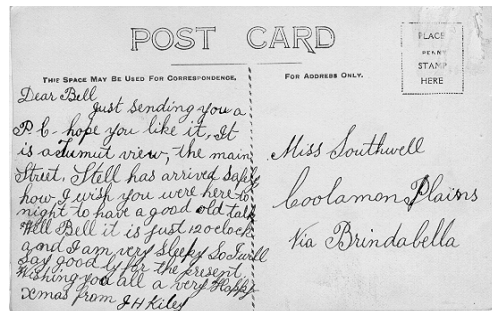 POST CARD
THIS SPACE MAY BE USED FOR CORRESPONDENCE.
FOR ADDRESS ONLY.
PLACE
PENNY
STAMP
HERE
Dear Bell
Just sending you a
P C- hope you like it. It
is a Tumut view, the main
Street. Stell has arrived safely
how I wish you were here to-
night to have a good old talk
Well Bell it is just 12 oclock
and I am very sleepy So I will
say good by for the present.
Wishing you all a very Happy
Xmas from J H Kiley
Miss Southwell
Coolamon Plains
Via Brindabella